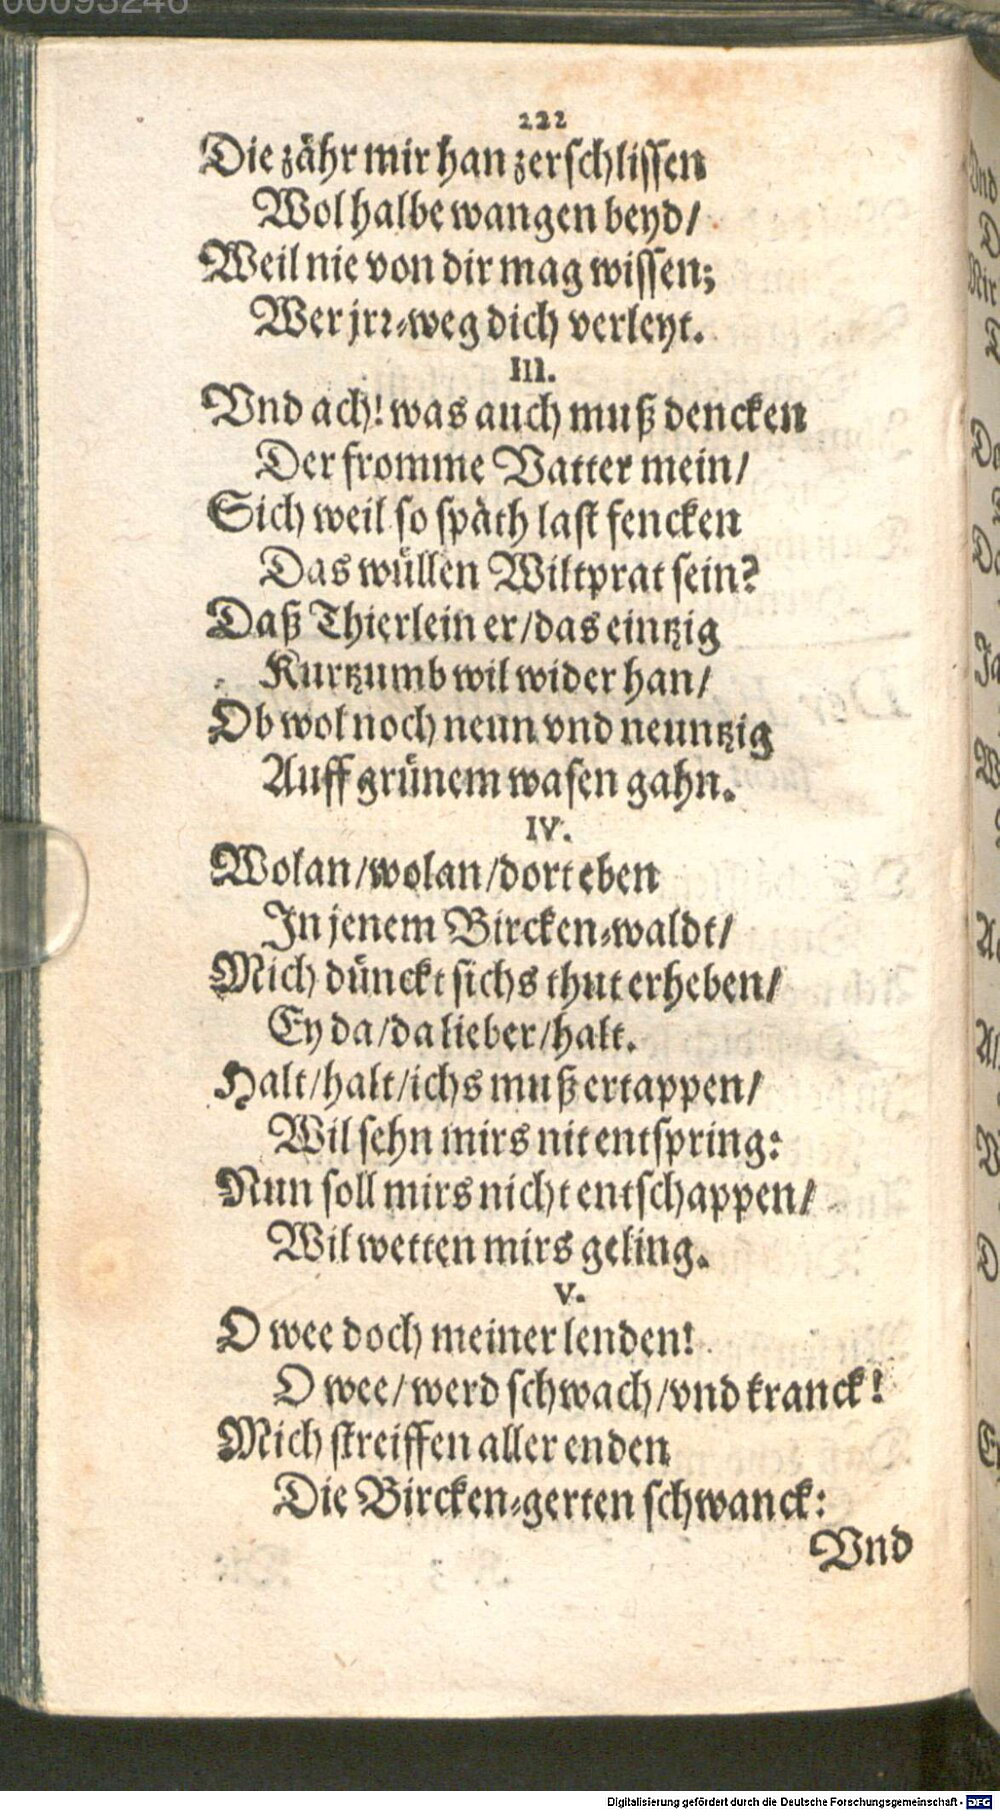 222
Die zåhr mir han zerschlissen
Wol halbe wangen beyd/
Weil nie von dir mag wissen;
Wer jrr-weg dich verleyt.
III.
Vnd ach! was auch muß dencken
Der fromme Vatter mein/
Sich weil so spåth last fencken
Das wůllen Wiltprat sein?
Daß Thierlein er/das eintzig
Kurtzumb wil wider han/
Ob wol noch neun vnd neuntzig
Auff grůnem wasen gahn.
IV.
Wolan/wolan/dort eben
In jenem Bircken-waldt/
Mich důnckt sichs thut erheben/
Ey da/da lieber/halt.
Halt/halt/ichs muß ertappen/
Wil sehn mirs nit entspring:
Nun soll mirs nicht entschappen/
Wil wetten mirs geling.
V.
O wee doch meiner lenden!
O wee/werd schwach/vnd kranck!
Mich streiffen aller enden
Die Bircken-gerten schwanck:
Vnd
Digitalisierung gefördert durch die Deutsche Forschungsgemeinschaft - DFG